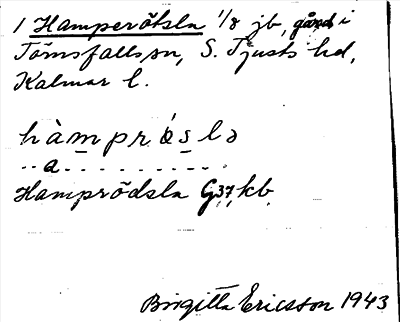 1 Hamperötsla 1/8 jb, gård i
Törnsfalls sn, S. Tjusts hd,
Kalmar l.
hàmprø̀slə
..a.........
Hamprödsla G37 kb.
Birgitta Ericsson 1943